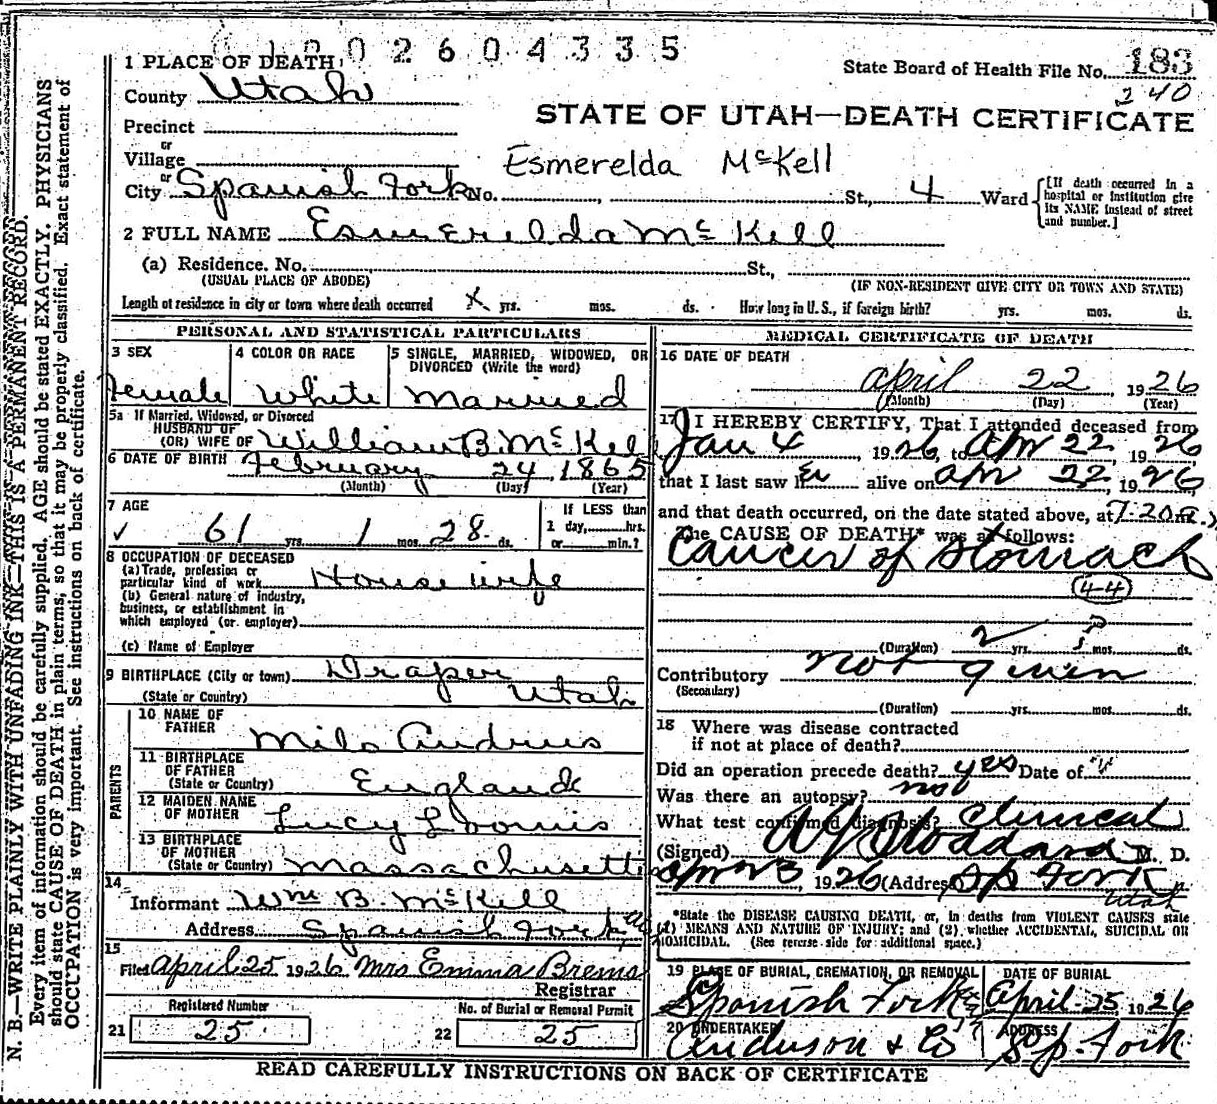 N. B.—WRITE PLAINLY WITH UNFADING INK—THIS IS A PERMANENT RECORD.
Every item of information should be carefully supplied. AGE should be stated EXACTLY. PHYSICIANS
should state CAUSE OF DEATH in plain terms, so that it may be properly classified. Exact statement of
OCCUPATION is very important. See instructions on back of certificate.
02604335
1 PLACE OF DEATH
State Board of Health File No. 183
240
County Utah
STATE OF UTAH—DEATH CERTIFICATE
Precinct
or
Village
Esmerelda McKell
or
City Spanish Fork No. St., 4 Ward
[If death occurred in a
hospital or institution give
its NAME instead of street
and number.]
2 FULL NAME Esmerelda McKell
(a) Residence. No. St.,
(USUAL PLACE OF ABODE) (IF NON-RESIDENT GIVE CITY OR TOWN AND STATE)
Length of residence in city or town where death occurred X yrs. mos. ds. How long in U. S., if foreign birth? yrs. mos. ds.
PERSONAL AND STATISTICAL PARTICULARS
3 SEX
Female
4 COLOR OR RACE
White
5 SINGLE, MARRIED, WIDOWED, OR
DIVORCED (Write the word)
Married
5a If Married, Widowed, or Divorced
HUSBAND OF
(OR) WIFE OF William B. McKell
6 DATE OF BIRTH February 24, 1865
(Month) (Day) (Year)
7 AGE
61 yrs. 1 mos. 28 ds.
If LESS than
1 day, hrs.
or min.?
8 OCCUPATION OF DECEASED
(a) Trade, profession or
particular kind of work Housewife
(b) General nature of industry,
business, or establishment in
which employed (or employer)
(c) Name of Employer
9 BIRTHPLACE (City or town) Draper
(State or Country) Utah
PARENTS
10 NAME OF
FATHER Milo Andrus
11 BIRTHPLACE
OF FATHER
(State or Country) England
12 MAIDEN NAME
OF MOTHER Lucy Loomis
13 BIRTHPLACE
OF MOTHER
(State or Country) Massachusetts
14
Informant Wm B. McKell
Address Spanish Fork
15
Filed April 25 1926 Mrs Emma Brems
Registrar
Registered Number
21 25
No. of Burial or Removal Permit
22 25
MEDICAL CERTIFICATE OF DEATH
16 DATE OF DEATH
April 22 1926
(Month) (Day) (Year)
17 I HEREBY CERTIFY, That I attended deceased from
Jan 4, 1926, to Apr 22, 1926
that I last saw her alive on Apr 22, 1926,
and that death occurred, on the date stated above, at 7:20 a.m.
The CAUSE OF DEATH* was as follows:
Cancer of Stomach
(44)
(Duration) 2 yrs. mos. ds.
Contributory not given
(Secondary)
(Duration) yrs. mos. ds.
18 Where was disease contracted
if not at place of death?
Did an operation precede death? yes Date of
Was there an autopsy? no
What test confirmed diagnosis? Clinical
(Signed) Stoddard M. D.
Apr 23, 1926 (Address) Sp Fork
Utah
*State the DISEASE CAUSING DEATH, or, in deaths from VIOLENT CAUSES state
(1) MEANS AND NATURE OF INJURY; and (2) whether ACCIDENTAL, SUICIDAL OR
HOMICIDAL. (See reverse side for additional space.)
19 PLACE OF BURIAL, CREMATION, OR REMOVAL
Spanish Fork
DATE OF BURIAL
April 25, 1926
20 UNDERTAKER
Anderson & Co
ADDRESS
Sp. Fork
READ CAREFULLY INSTRUCTIONS ON BACK OF CERTIFICATE